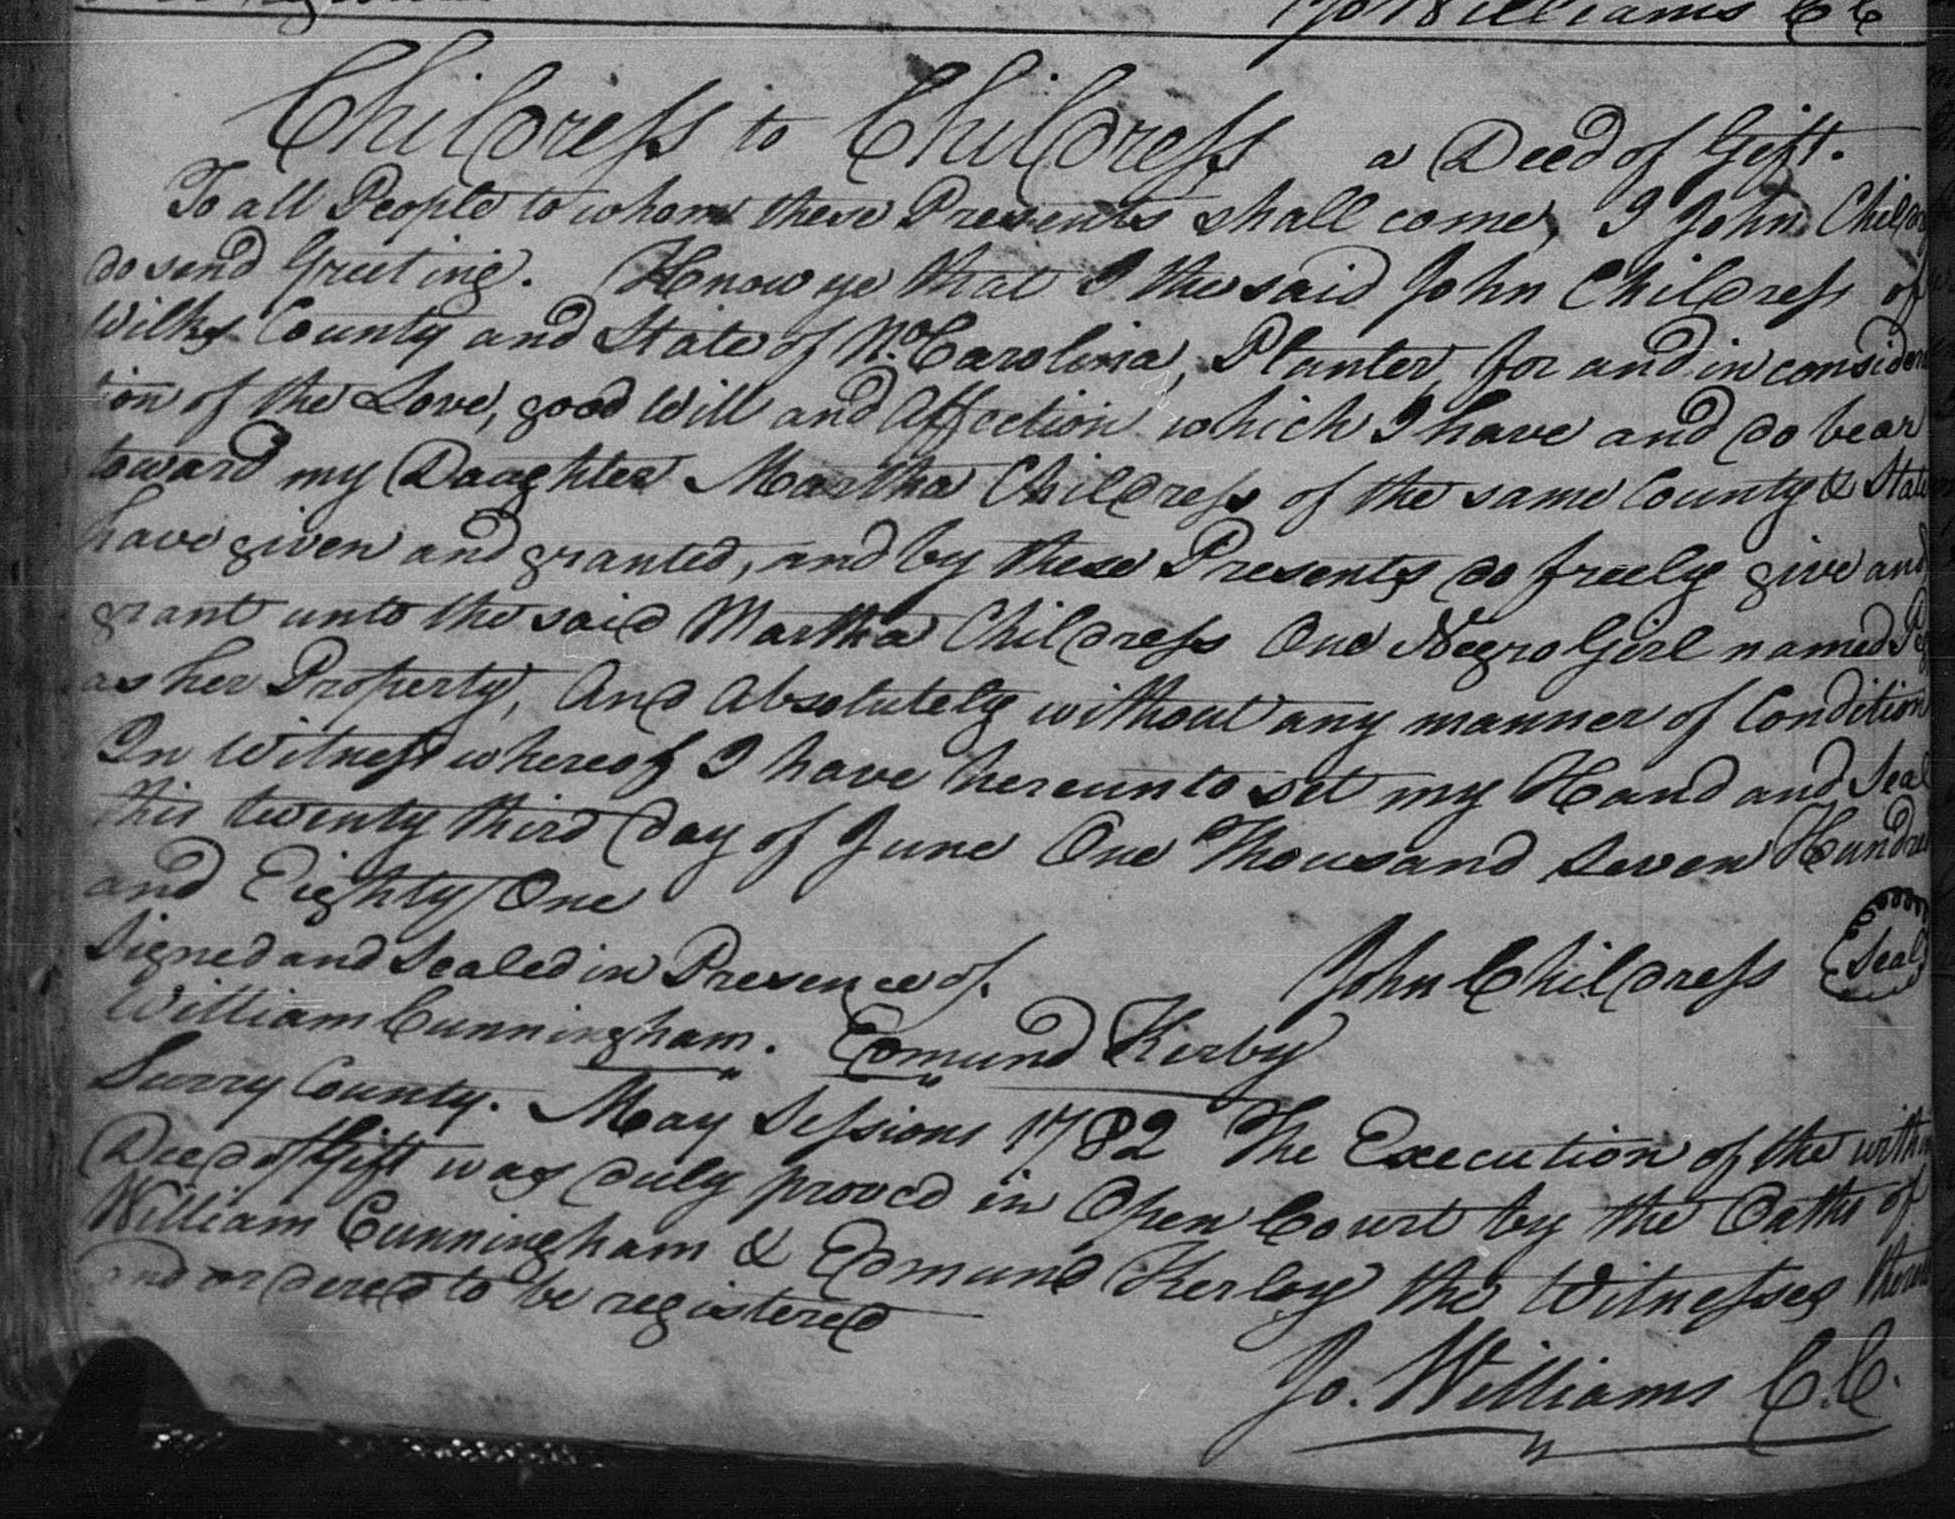 Jo Williams C C
Childress to Childress a Deed of Gift.
To all People to whom these Presents shall come, I John
do send Greeting. Know ye that I the said John Childress of
Wilks County and State of No. Carolina, Planter, for and in
tion of the Love, good Will and Affection which I have and do bear
toward my Daughter Martha Childress of the same County & State
have given and granted, and by these Presents do freely give and
grant unto the said Martha Childress One Negro Girl named
as her Property, And Absolutely without any manner of Condition
In Witness whereof I have hereunto set my Hand and Seal
this twenty third Day of June One Thousand Seven
and Eighty One
Signed and Sealed in Presence of. John Childress Seal
William Cunningham. Edmund Kerby
Surry County. May Sessions 1782 The Execution of the
Deed of Gift was duly proved in Open Court by the Oaths of
William Cunningham & Edmund Kerby the Witnesses
and ordered to be registered
Jo. Williams C.C.